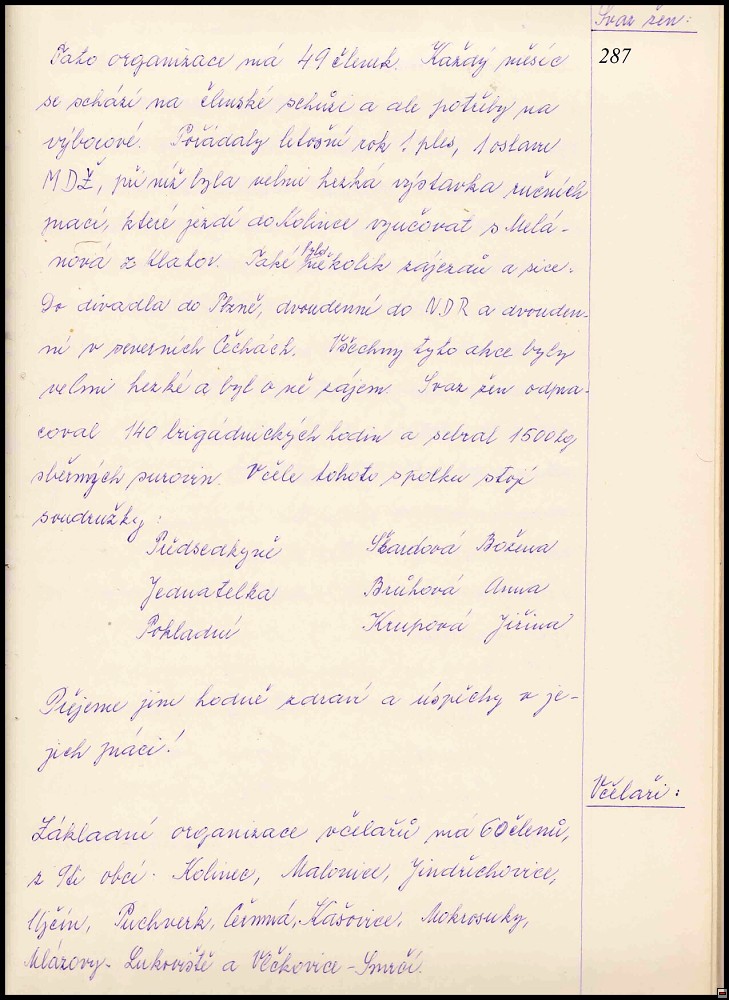 Svaz žen:
287
Tato organizace má 49 členek. Každý měsíc
se schází na členské schůzi a dle potřeby na
výborové. Pořádaly letošní rok 1 ples, 1 oslavu
MDŽ, při níž byla velmi hezká výstavka ručních
prací, které jezdí do Kolince vyučovat s Melá-
nová z Klatov. Také bylo několik zájezdů a sice.
Do divadla do Plzně, dvoudenní do NDR a dvouden-
ní v severních Čechách. Všechny tyto akce byly
velmi hezké a byl o ně zájem. Svaz žen odpra-
coval 140 brigádnických hodin a sebral 1500 kg
sběrných surovin. V čele tohoto spolku stojí
soudružky:
Předsedkyně Škardová Božena
Jednatelka Brůhová Anna
Pokladní Krupová Jiřina
Přejeme jim hodně zdraví a úspěchy v je-
jich práci!
Včelaři:
Základní organizace včelařů má 60 členů,
z 9ti obcí. Kolinec, Malonice, Jindřichovice,
Ujčín, Puchverk, Černná, Kašovice, Mokrosuky,
Mlázovy- Lukoviště a Vlčkovice - Smrčí.